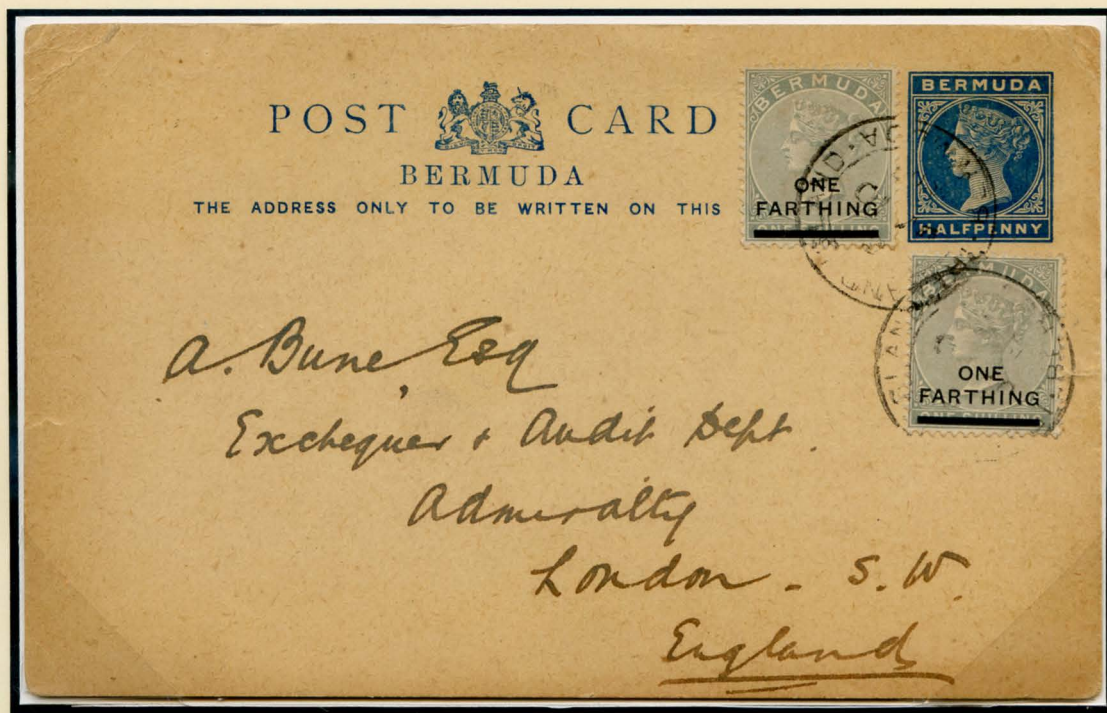 POST CARD
BERMUDA
THE ADDRESS ONLY TO BE WRITTEN ON THIS
BERMUDA
ONE
FARTHING
BERMUDA
HALFPENNY
BERMUDA
ONE
FARTHING
ONE SHILLING
A. Bune, Esq
Exchequer & Audit Dept.
Admiralty
London - S. W.
England